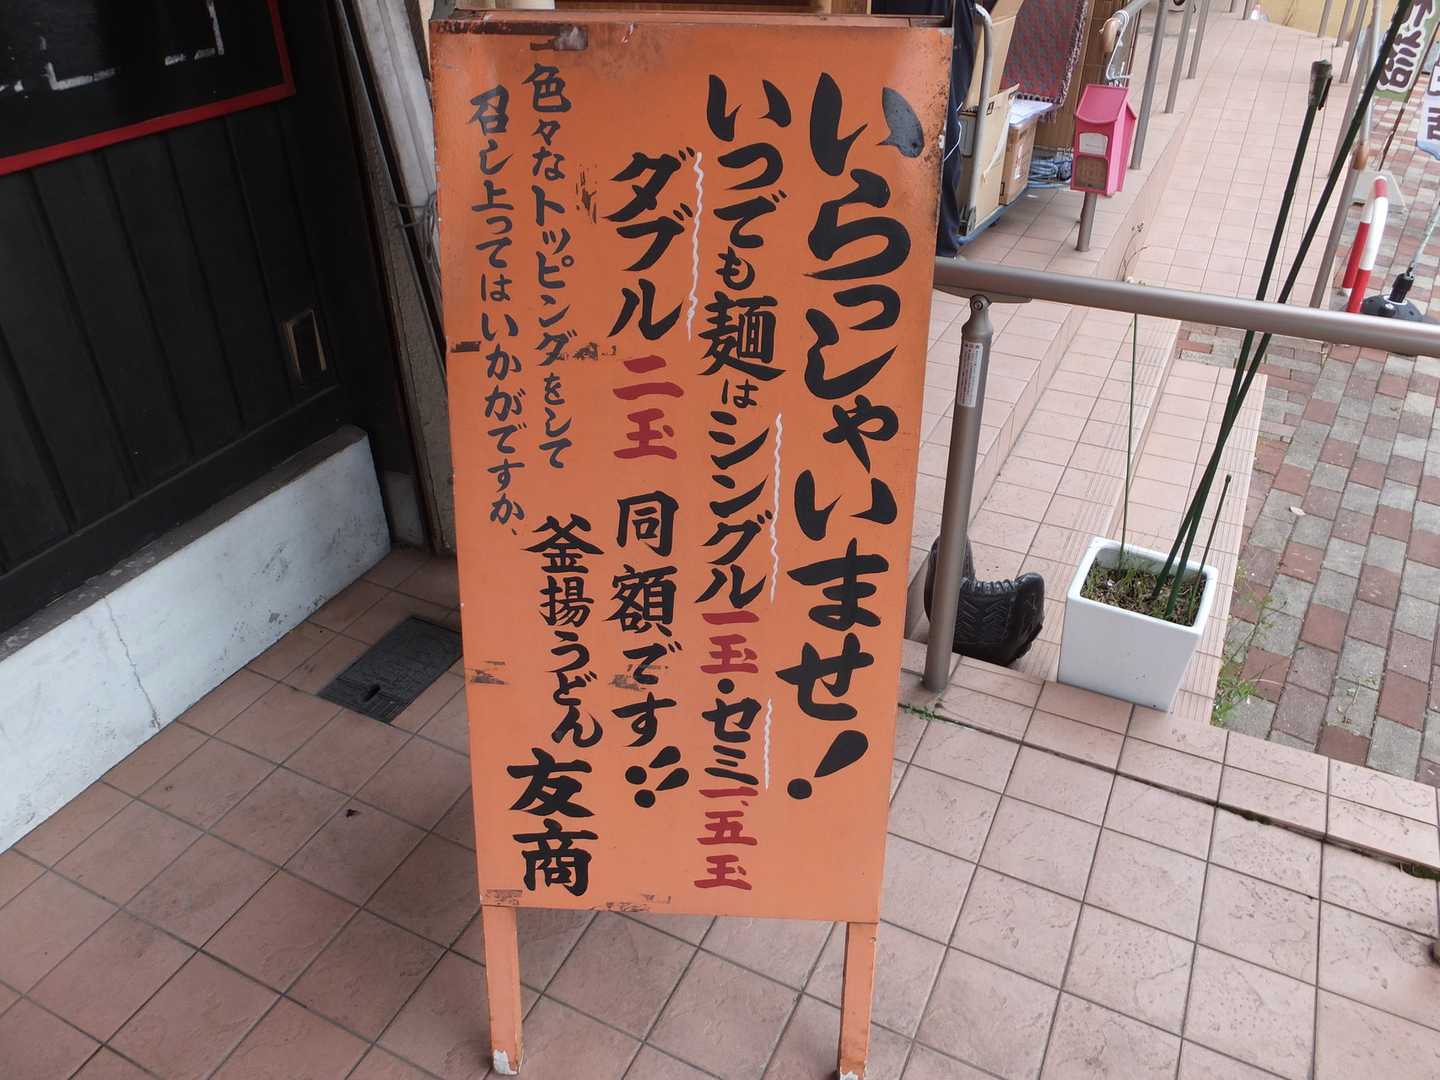 いらっしゃいませ!
いつでも麺はシングル一玉・セミ一、五玉
ダブル二玉 同額です!!
色々なトッピングをして
召し上ってはいかがですか、
釜揚うどん 友商